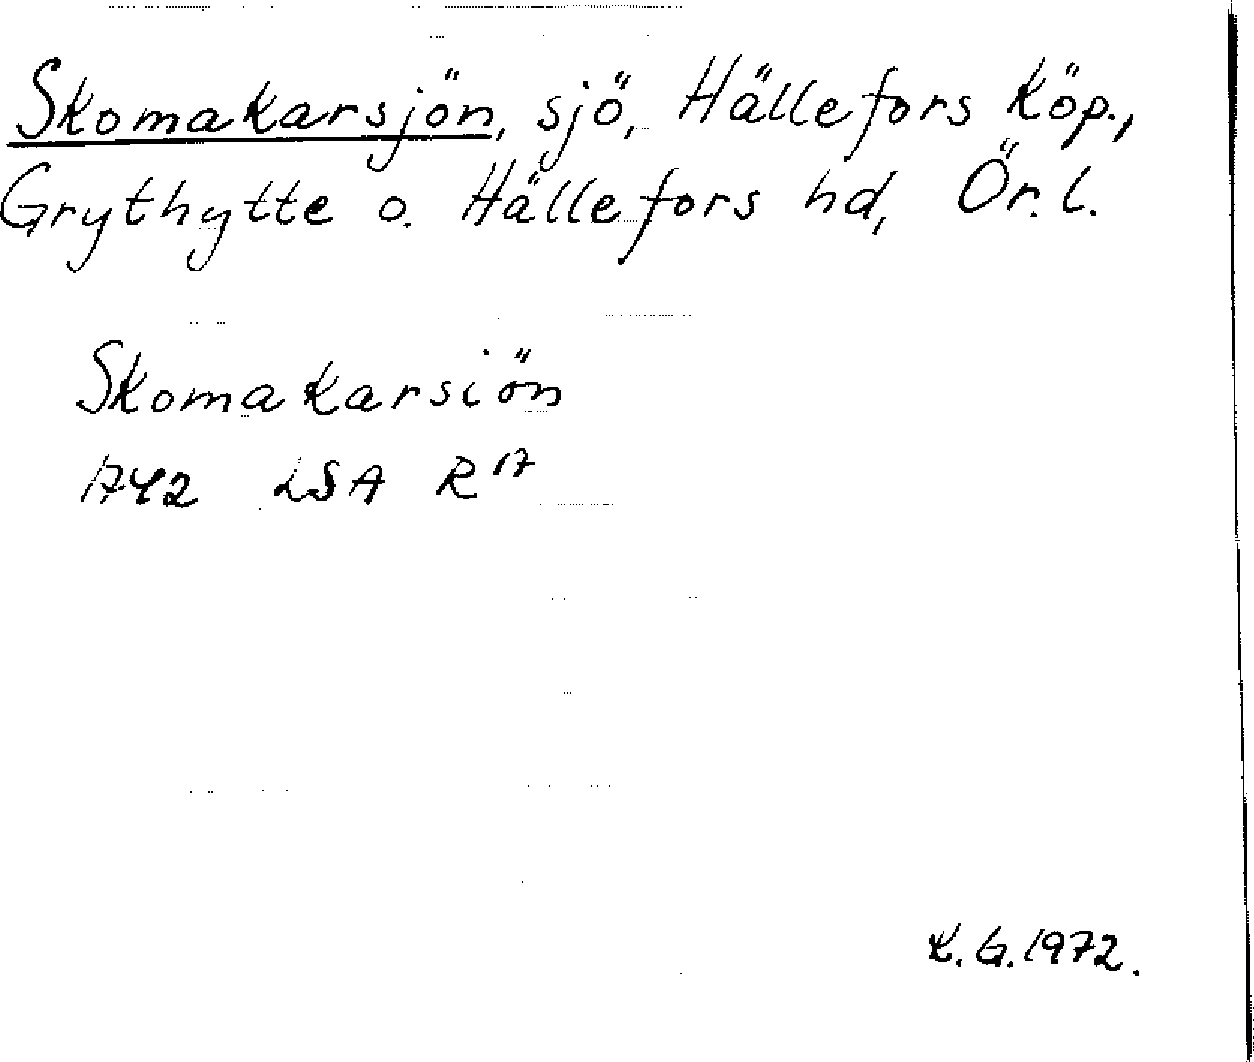 Skomakarsjön, sjö, Hällefors Köp.,
Grythytte o. Hällefors hd, Ör. l.
Skomakarsiön
1742 LSA R 17
K. G. 1972.